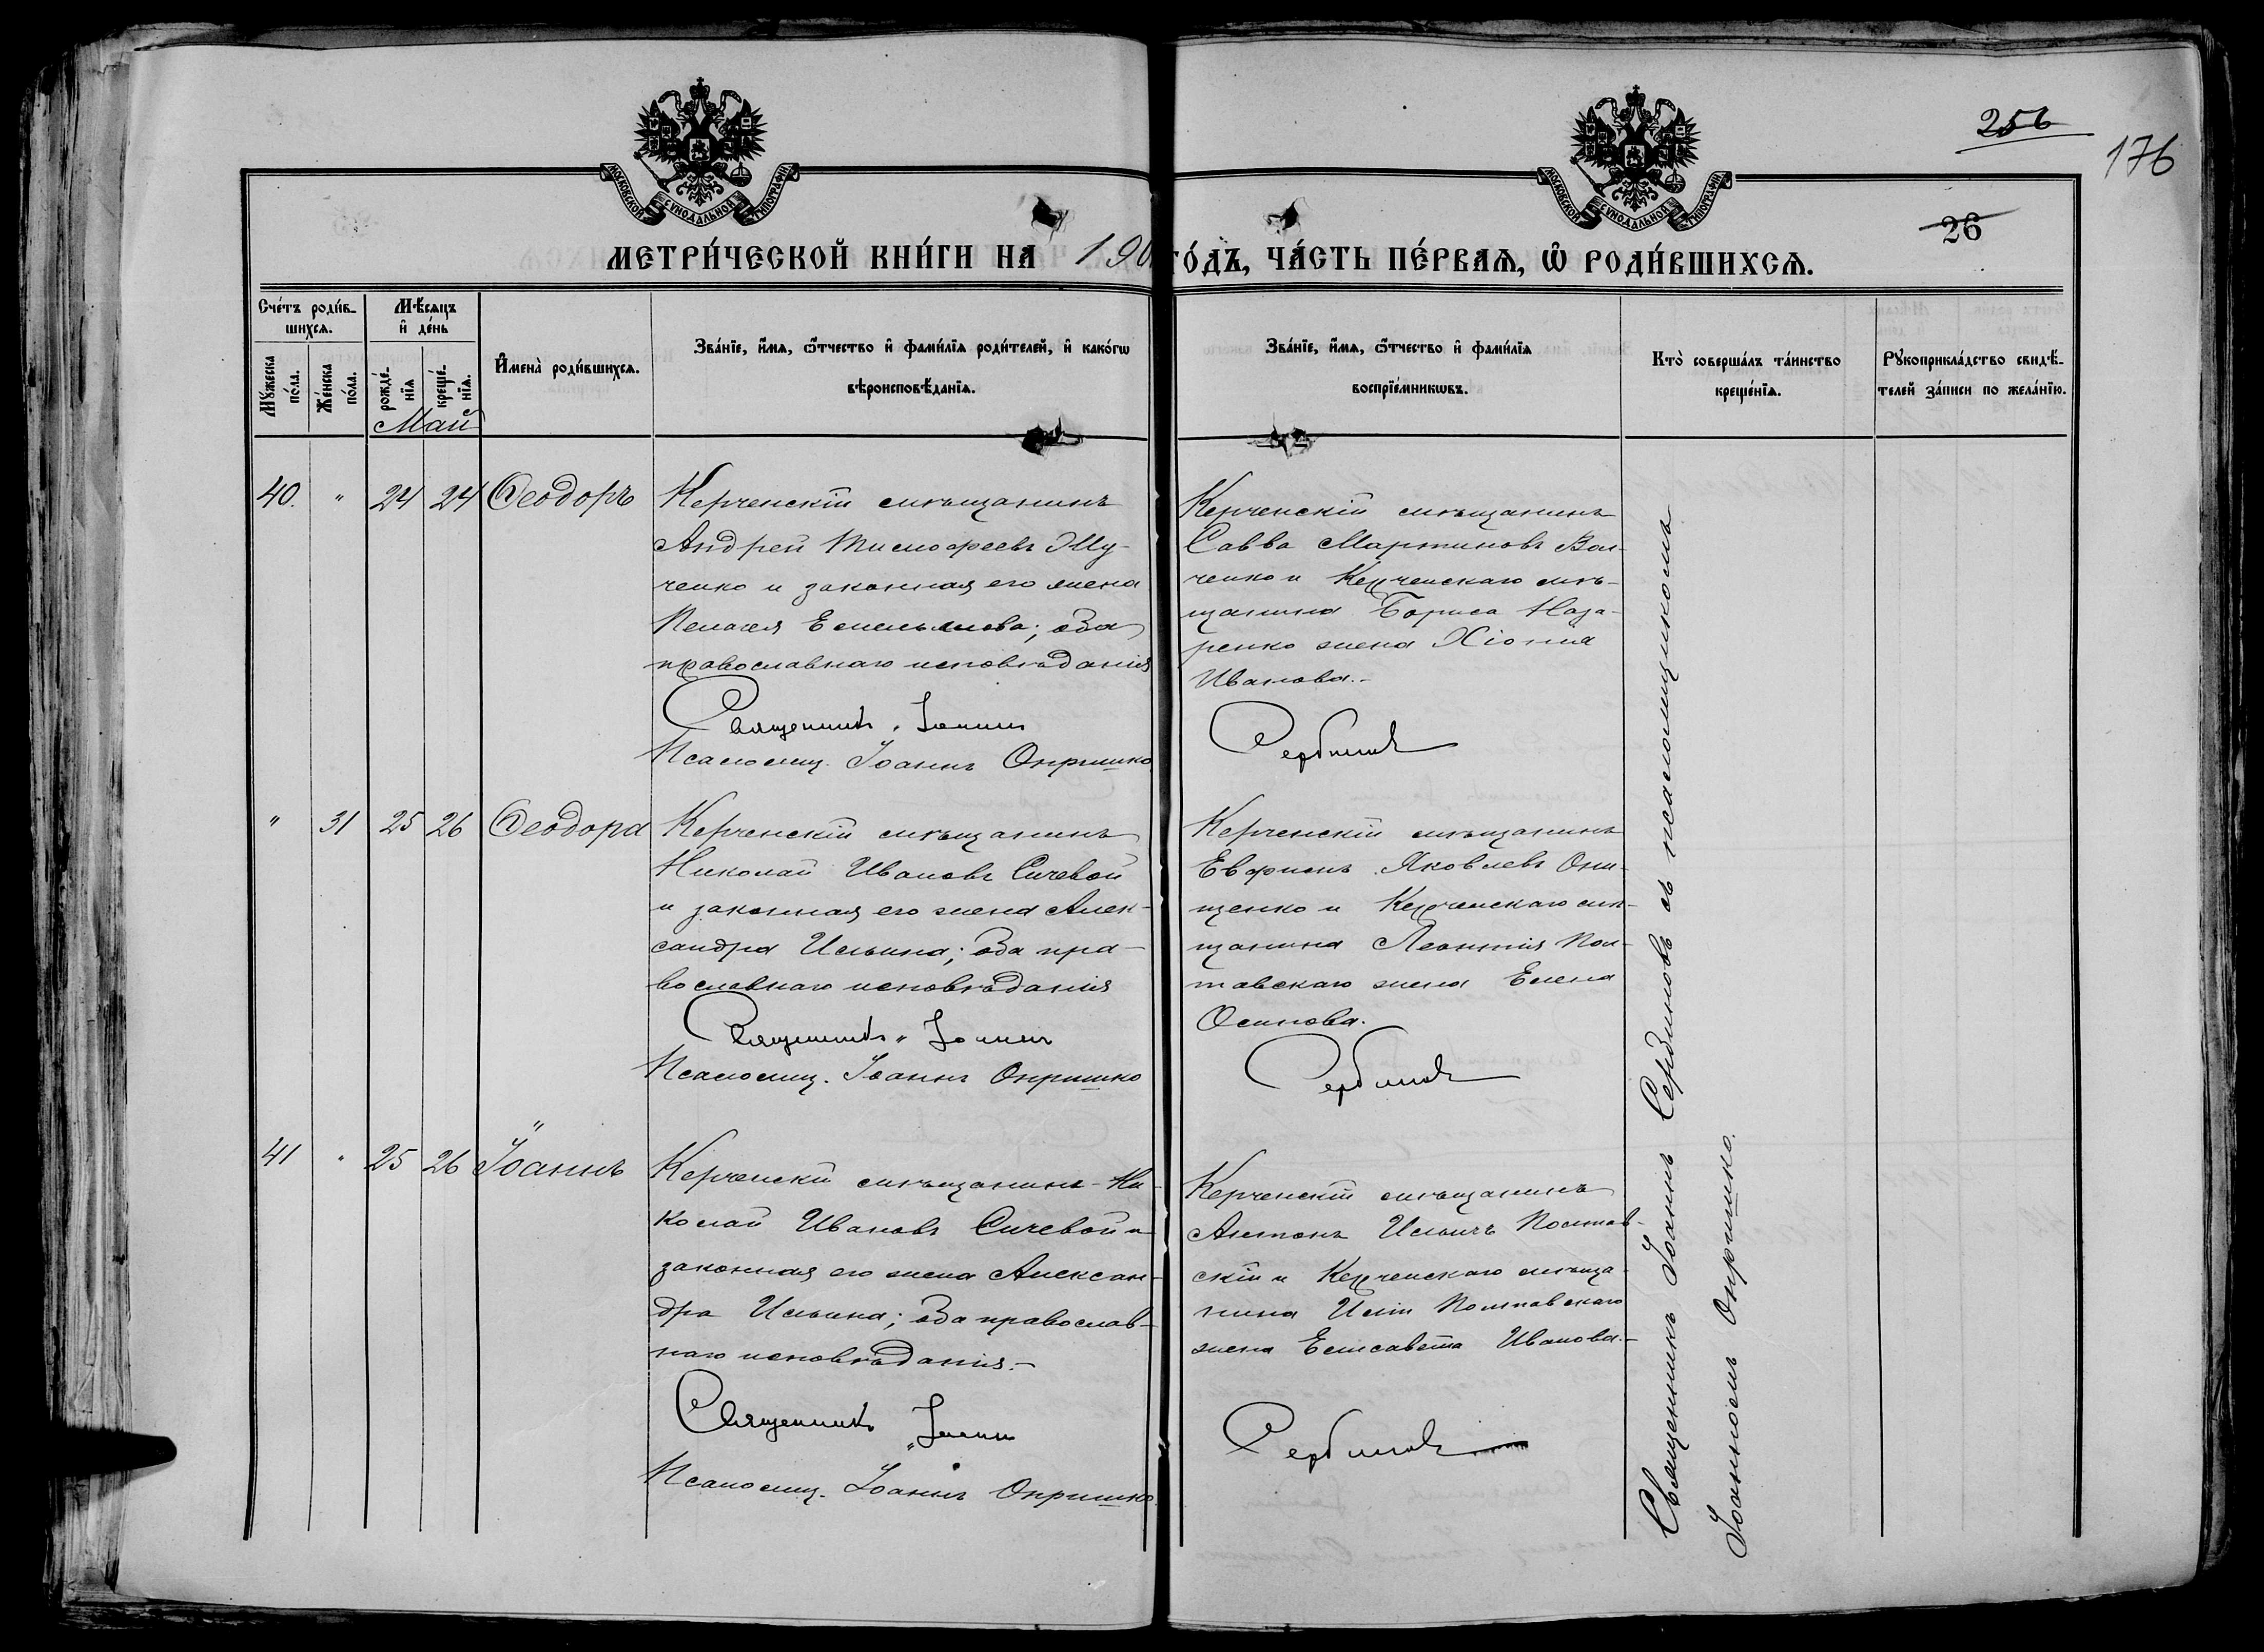 256
176
МОСКОВСКОЙ СѴНОДАЛЬНОЙ ТИПОГРАФІИ
МОСКОВСКОЙ СѴНОДАЛЬНОЙ ТИПОГРАФІИ
26
МЕТРИ́ЧЕСКОЙ КНИ́ГИ НА 190
ГО́ДЪ, ЧА́СТЬ ПЕ́РВАѦ, Ѡ҆ РОДИ́ВШИХСѦ.
Сче́тъ роди́в-
шихсѧ.
Мѣ́сѧцъ
и҆ де́нь
Мꙋ́жеска
по́ла.
Же́нска
по́ла.
рожде́-
нїѧ
креще́-
нїѧ.
Май
И҆мена̀ роди́вшихсѧ.
Зва́нїе, и҆́мѧ, ѻ҆́тчество и҆ фами́лїѧ роди́телей, и҆ како́гѡ
вѣроисповѣ́данїѧ.
Зва́нїе, и҆́мѧ, ѻ҆́тчество и҆ фами́лїѧ
воспрїе́мникѡвъ.
Кто̀ соверша́лъ та́инство
креще́нїѧ.
Рꙋкоприкла́дство свидѣ́-
телей за́писи по жела́нїю.
40. " 24 24 Ѳеодоръ
Керченскій мѣщанинъ
Андрей Тимофеевъ
ченко и законная его жена
Пелагея Емельянова; оба
православнаго исповѣданія
Священникъ Іоаннъ
Псаломщ. Іоаннъ Опришко
Керченскій мѣщанинъ
Савва Мартиновъ Вол-
ченко и Керченскаго мѣ-
щанина Бориса Наза-
ренко жена Хіонія
Иванова.-
Сербиновъ
" 31 25 26 Ѳеодора
Керченскій мѣщанинъ
Николай Ивановъ Сичевой
и законная его жена Алек-
сандра Ильина; оба пра-
вославнаго исповѣданія
Священникъ Іоаннъ
Псаломщ. Іоаннъ Опришко
Керченскій мѣщанинъ
Яковлевъ Они-
щенко и Керченскаго мѣ-
щанина Леонтія Пол-
тавскаго жена Елена
Осипова.
Сербиновъ
41 " 25 26 Іоаннъ
Керченскій мѣщанинъ Ни-
колай Ивановъ Сичевой и
законная его жена Алексан-
дра Ильина; оба православ-
наго исповѣданія.-
Священникъ Іоаннъ
Псаломщ. Іоаннъ Опришко
Керченскій мѣщанинъ
Антонъ Ильичъ Полтав-
скій и Керченскаго мѣща-
нина Иліи Полтавскаго
жена Елисавета Иванова.-
Сербиновъ
Священникъ Іоаннъ Сербиновъ съ псаломщикомъ
Іоанномъ Опришко.